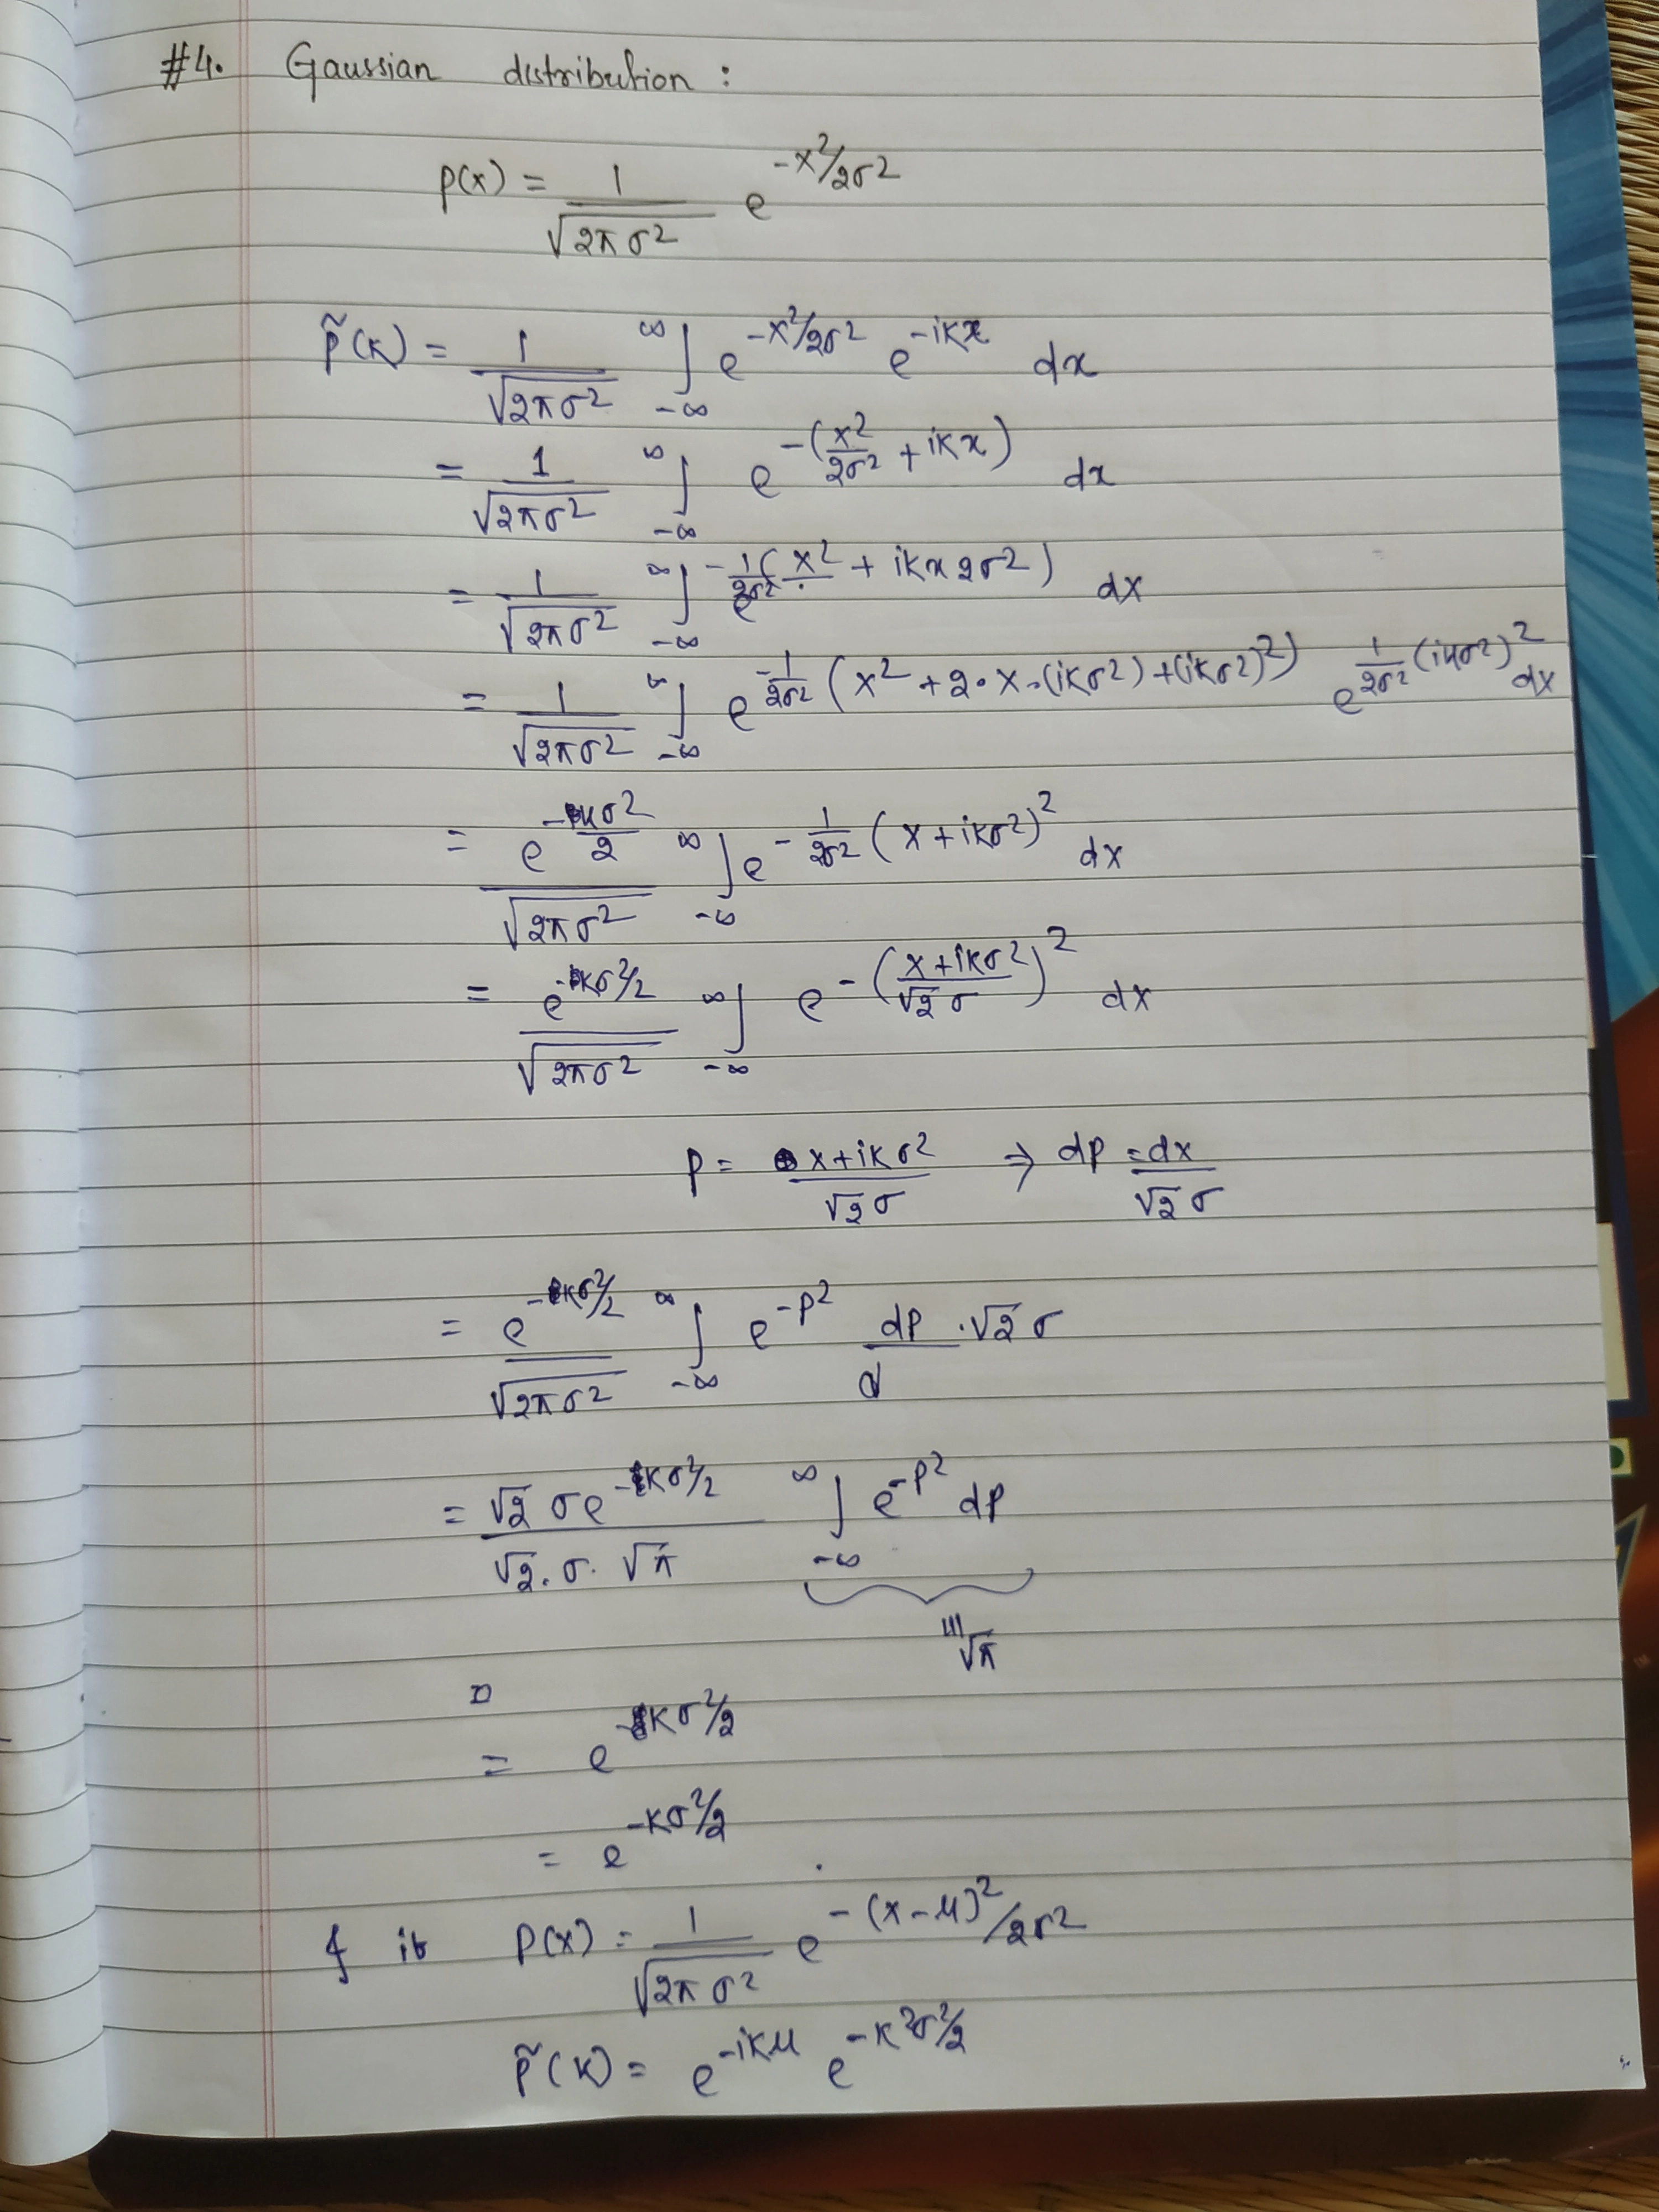 #4. Gaussian distribution :
p(x) = 1/√(2πσ²) e^(-x²/2σ²)
p̃(k) = 1/√(2πσ²) ∫_{-∞}^{∞} e^(-x²/2σ²) e^(-ikx) dx
= 1/√(2πσ²) ∫_{-∞}^{∞} e^(-(x²/2σ² + ikx)) dx
= 1/√(2πσ²) ∫_{-∞}^{∞} e^(-1/2σ² (x² + ikx2σ²)) dx
= 1/√(2πσ²) ∫_{-∞}^{∞} e^(-1/2σ² (x² + 2·x·(ikσ²) + (ikσ²)²)) e^(1/2σ² (ikσ²)²) dx
= e^(-kσ²/2)/√(2πσ²) ∫_{-∞}^{∞} e^(-1/2σ² (x+ikσ²)²) dx
= e^(-kσ²/2)/√(2πσ²) ∫_{-∞}^{∞} e^(-((x+ikσ²)/√2σ)²) dx
p = (x+ikσ²)/√2σ ⇒ dp = dx/√2σ
= e^(-kσ²/2)/√(2πσ²) ∫_{-∞}^{∞} e^(-p²) dp/d · √2σ
= √2 σe^(-kσ²/2)/(√2·σ·√π) ∫_{-∞}^{∞} e^(-p²) dp
√π
= e^(-kσ²/2)
= e^(-kσ²/2)
p(x) = 1/√(2πσ²) e^(-(x-μ)²/2σ²)
p̃(k) = e^(-ikμ) e^(-k²σ²/2)